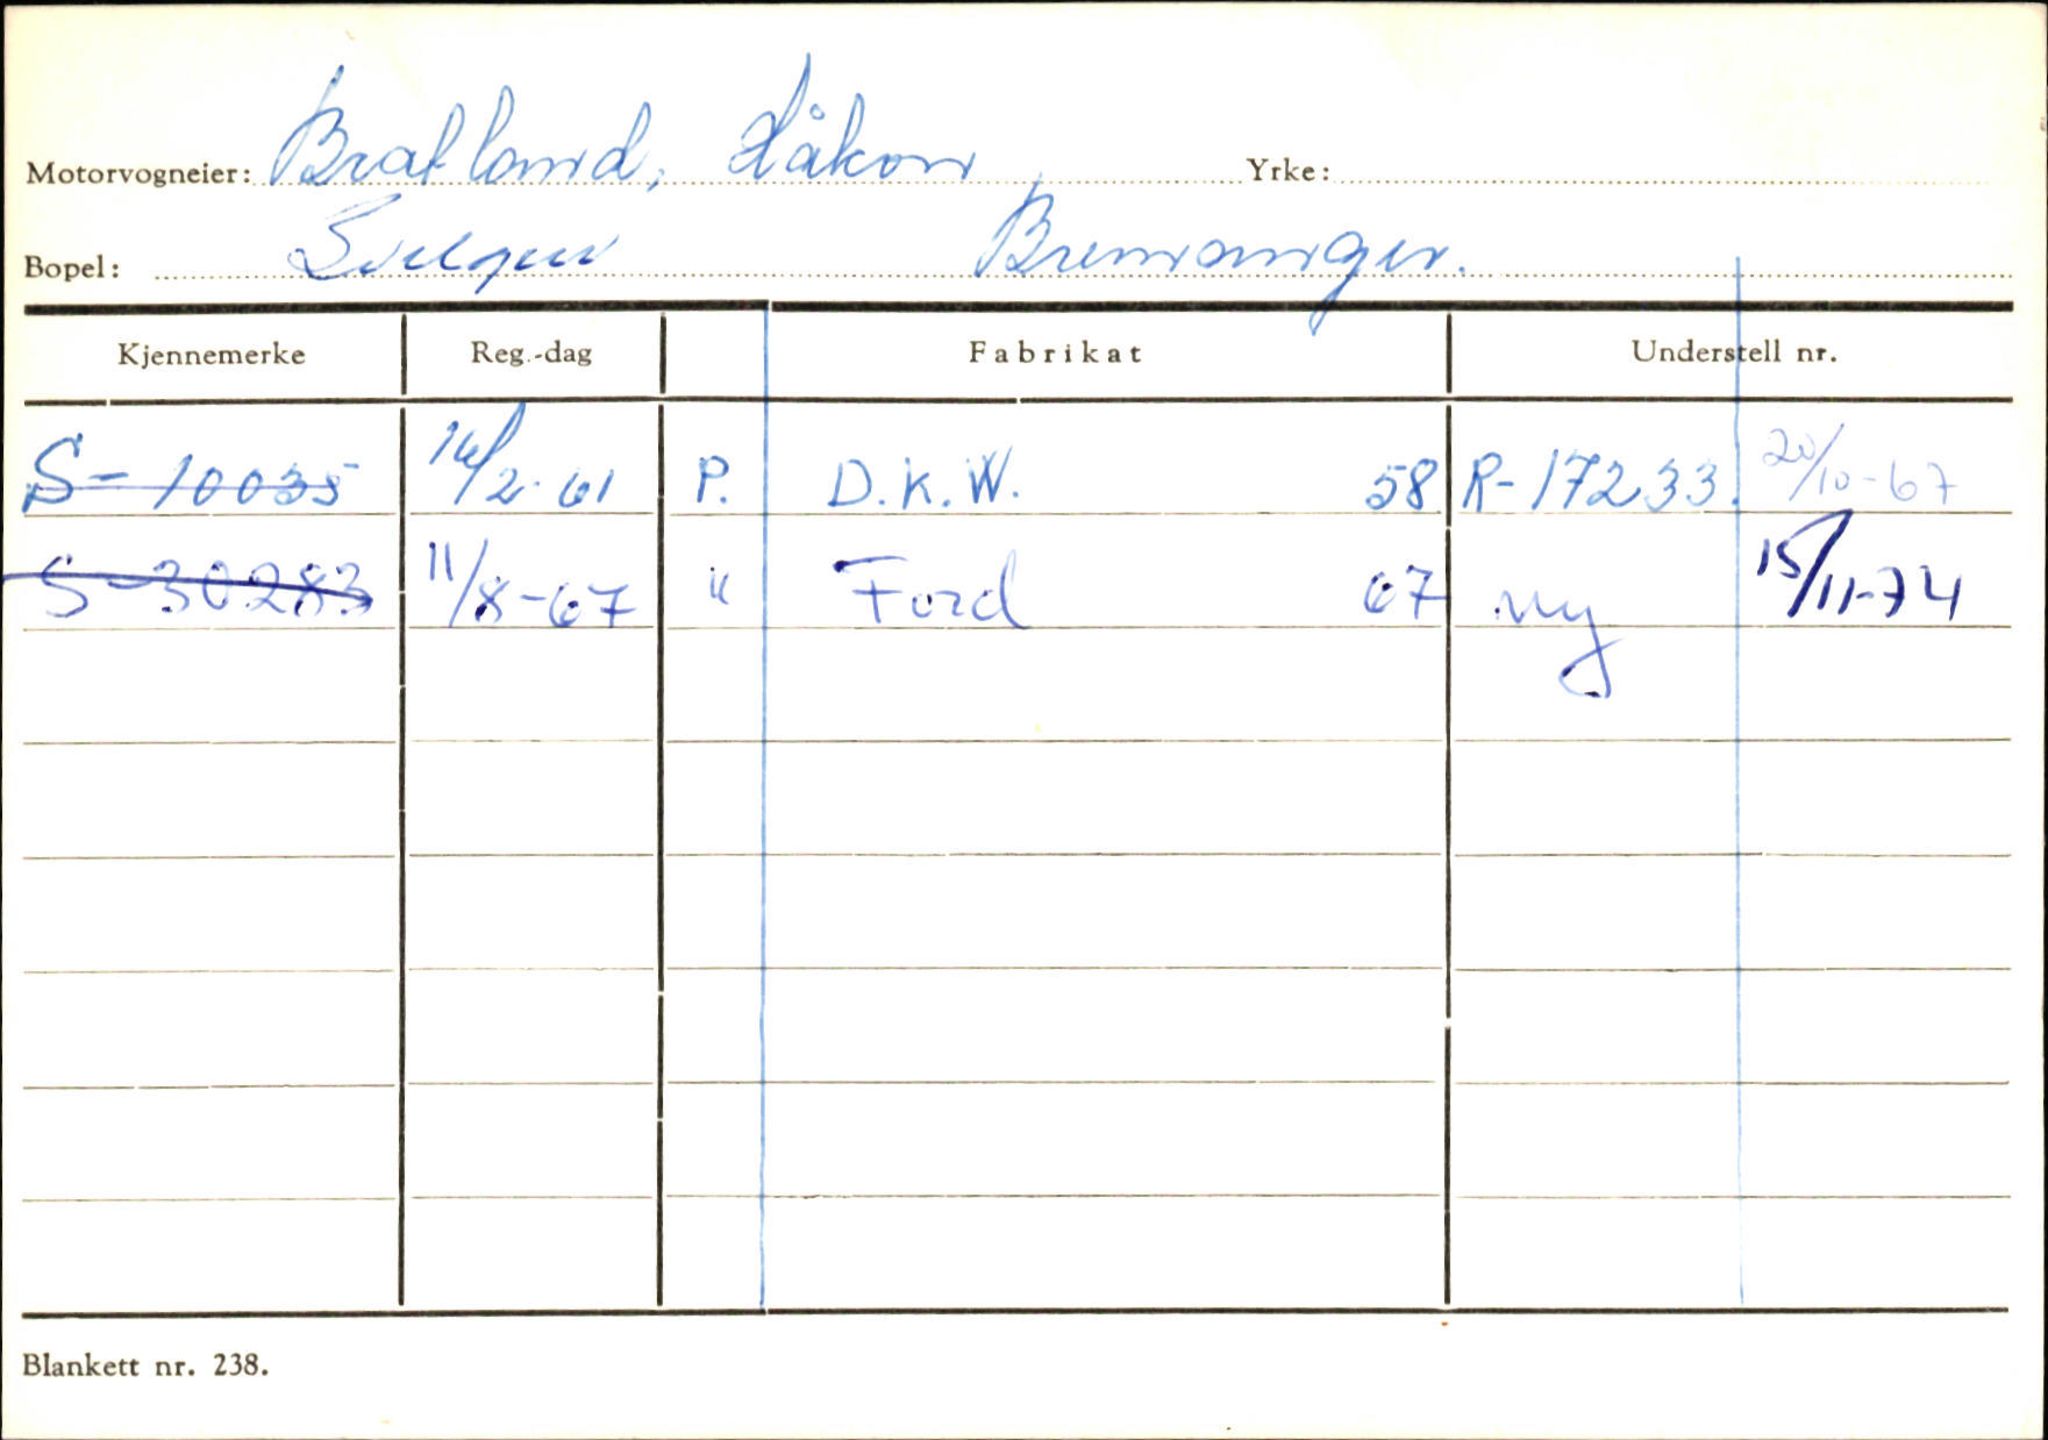 Motorvogneier: Bratland, Håkon Yrke:
Bopel: Svelgen Bremanger.
Kjennemerke Reg.-dag Fabrikat Understell nr.
S-10035 16/2-61 P. D.K.W. 58 R-17233. 20/10-67
S-30283 11/8-67 " Ford 67 ny 15/11-74
Blankett nr. 238.